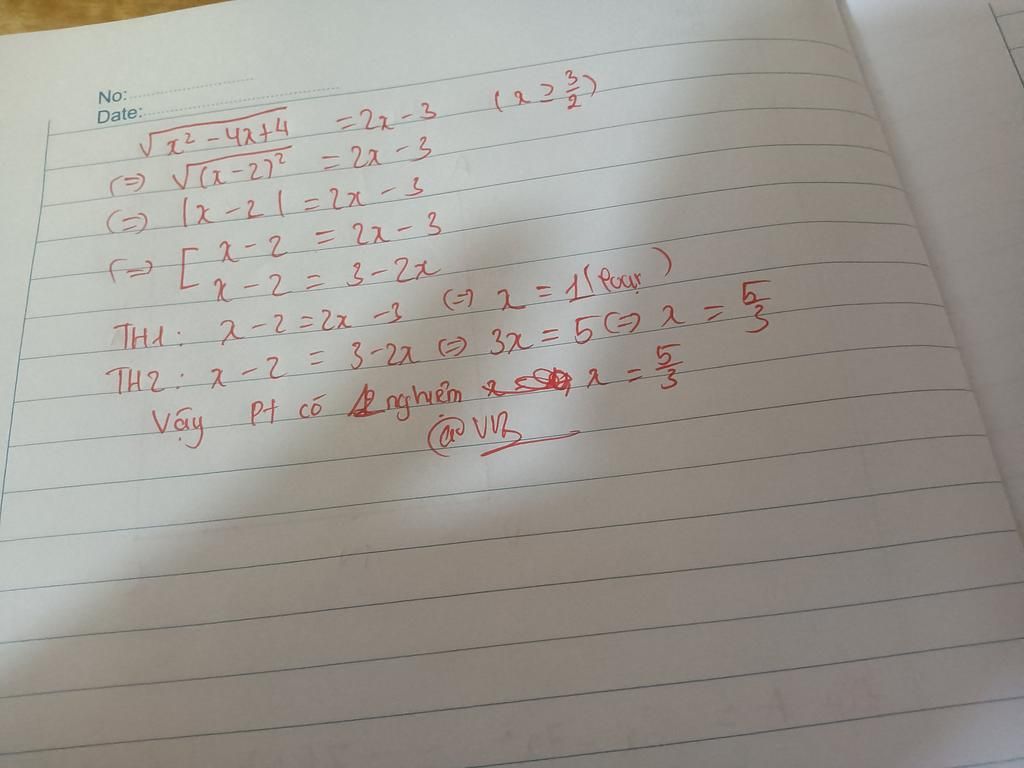 No:
Date:
√(x² - 4x + 4) = 2x - 3 (x ≥ 3/2)
(=) √((x - 2)²) = 2x - 3
(=) |x - 2| = 2x - 3
(=) [ x - 2 = 2x - 3
x - 2 = 3 - 2x
TH1: x - 2 = 2x - 3 (=) x = 1 (loại)
TH2: x - 2 = 3 - 2x (=) 3x = 5 (=) x = 5/3
Vậy pt có nghiệm x = 5/3